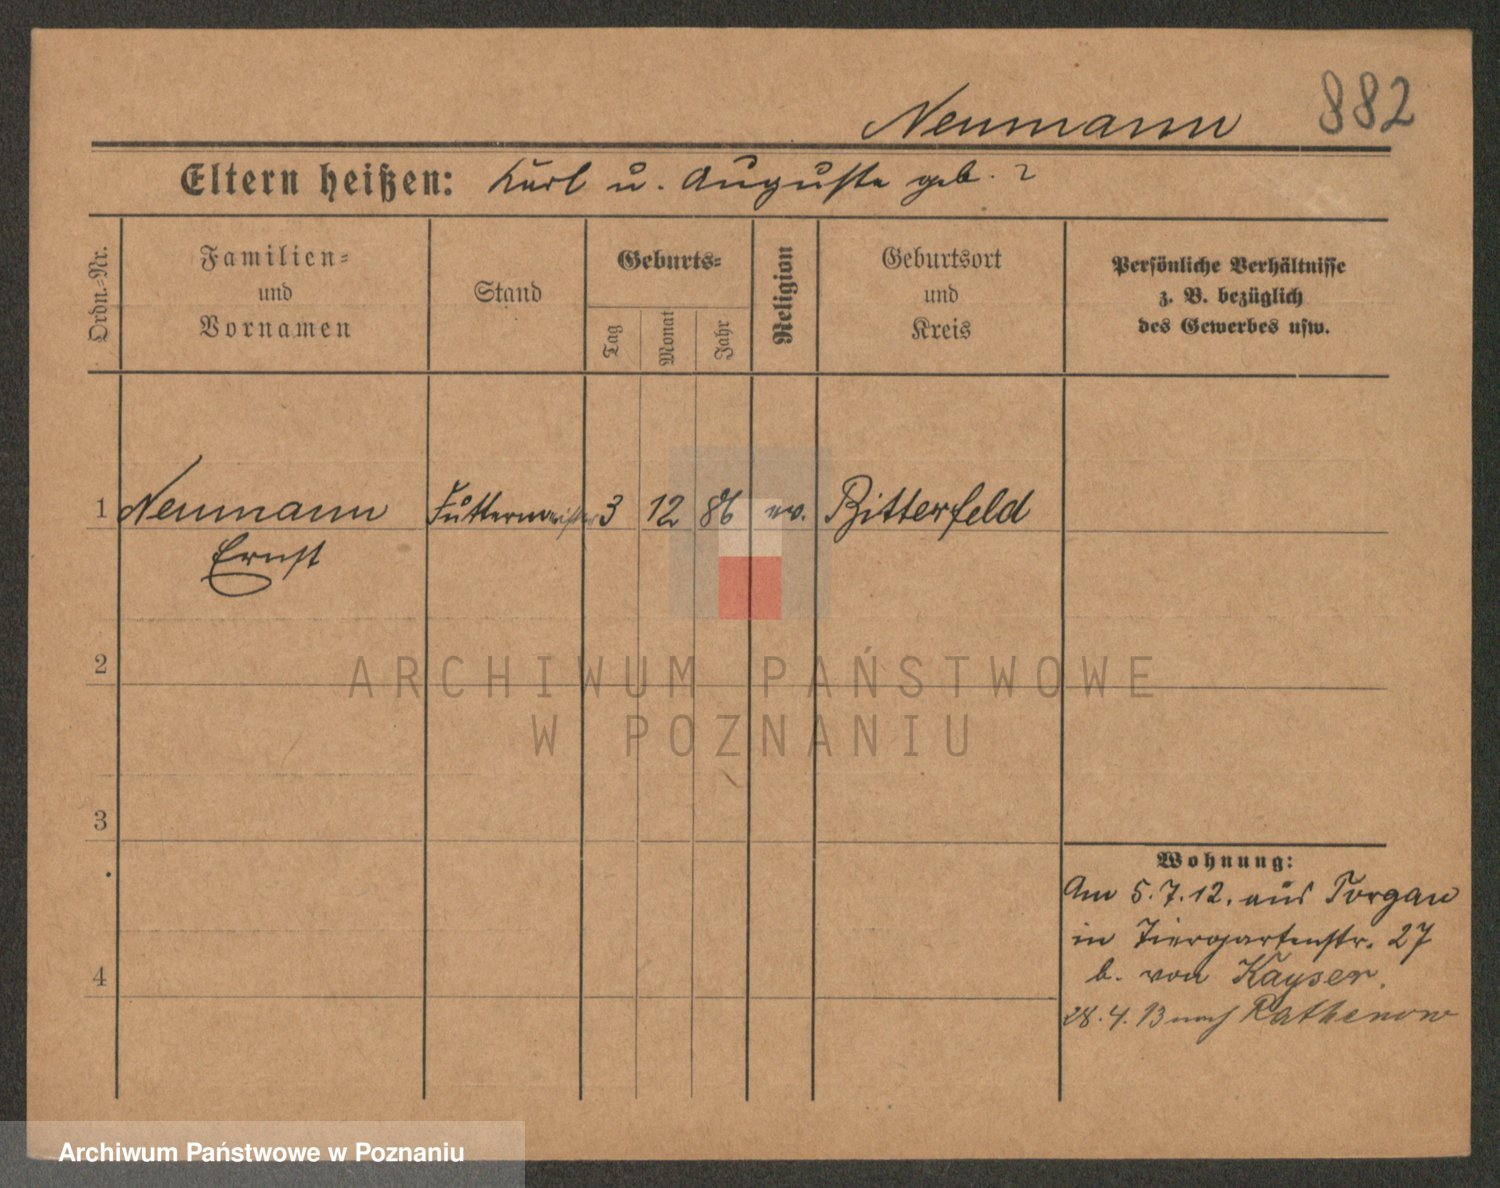 Neumann 882
Eltern heißen: Karl u. Auguste geb. ?
Ordn.-Nr.
Familien-
und
Vornamen
Stand
Geburts-
Tag
Monat
Jahr
Religion
Geburtsort
und
Kreis
Persönliche Verhältnisse
z. B. bezüglich
des Gewerbes usw.
1 Neumann Futtermeister 3 12 86 ev. Bitterfeld
Ernst
2
ARCHIWUM PAŃSTWOWE
W POZNANIU
3
Wohnung:
Am 5.7.12. aus Torgau
in Tiergartenstr. 27
b. von Kayser.
4
28.4.13 nach Rathenow
Archiwum Państwowe w Poznaniu